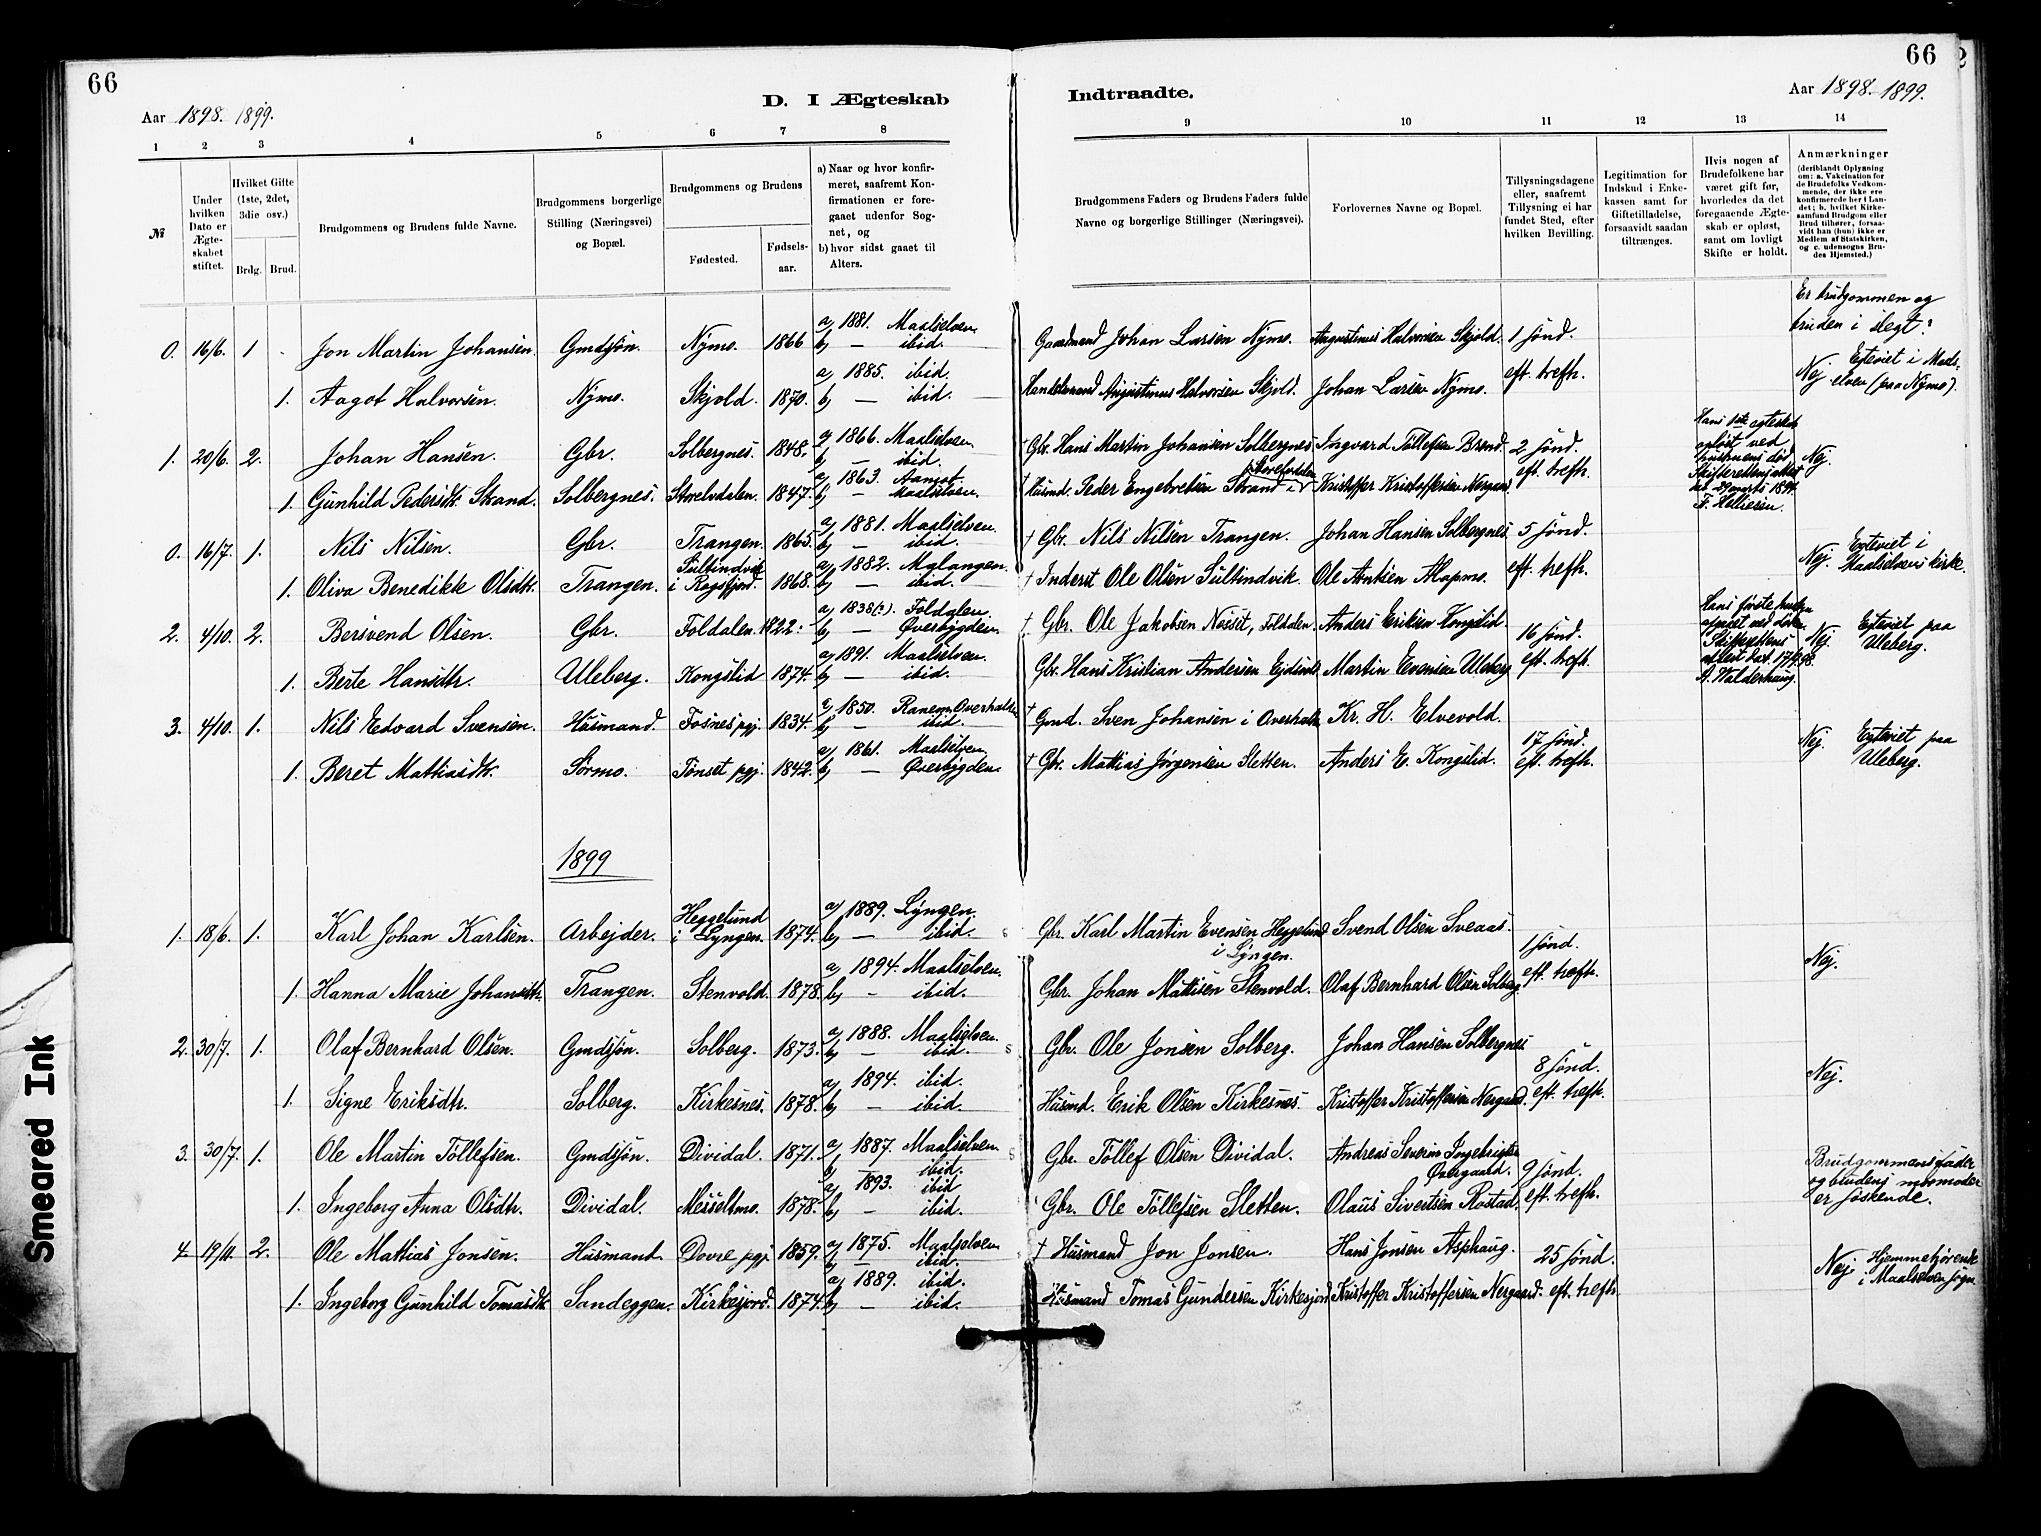 66
66
Aar 1898. 1899.
D. I Ægteskab
Indtraadte.
Aar 1898. 1899.
1 2 3 4 5 6 7 8
9 10 11 12 13 14
№
Under hvilken Dato er Ægteskabet stiftet.
Hvilket Gifte (1ste, 2det, 3die osv.)
Brdg. Brud.
Brudgommens og Brudens fulde Navne.
Brudgommens borgerlige Stilling (Næringsvei) og Bopæl.
Brudgommens og Brudens
Fødested.
Fødselsaar.
a) Naar og hvor konfirmeret, saafremt Konfirmationen er foregaaet udenfor Sognet, og
b) hvor sidst gaaet til Alters.
Brudgommens Faders og Brudens Faders fulde Navne og borgerlige Stillinger (Næringsvei).
Forlovernes Navne og Bopæl.
Tillysningsdagene eller, saafremt Tillysning ei har fundet Sted, efter hvilken Bevilling.
Legitimation for Indskud i Enkekassen samt for Giftetilladelse, forsaavidt saadan tiltrænges.
Hvis nogen af Brudefolkene har været gift før, hvorledes da det foregaaende Ægteskab er opløst, samt om lovligt Skifte er holdt.
Anmærkninger
(deriblandt Oplysning om: a. Vakcination for de Brudefolks Vedkommende, der ikke ere konfirmerede her i Landet; b. hvilket Kirkesamfund Brudgom eller Brud tilhører, forsaavidt han (hun) ikke er Medlem af Statskirken, og c. udensogns Brudes Hjemsted.)
Er brudgommen og bruden i slegt?
0. 16/6. 1 Jon Martin Johansen. Gmdsjøn. Nymo. 1866 a) 1881. Maalselven. b) — ibid. Gaardmand Johan Larsen Nymo. Augustinus Halvorsen Skjold. 1 sønd. eft. trefh. Nej Egteviet i Maalselven (paa Nymo).
1. Aagot Halvorsen. Nymo. Skjold. 1870. a) 1885. ibid. b) — ibid. Handelsmand Augustinus Halvorsen Skjold. Johan Larsen Nymo.
1. 20/6. 2. Johan Hansen. Gbr. Solbergnes. 1848. a) 1866. Maalselven b) — ibid. † Gbr. Hans Martin Johansen Solbergnes Ingvard Tollefsen Brend. 2 sønd. eft. trefh. Hans 1ste egteskab opløst ved hustruens død. Nej.
1. Gunhild Pedersdtr. Strand. Solbergnes. Storelvdalen. 1847. a) 1863. Aamot b) — Maalselven. † Husmd. Peder Engebretsen Strand i Storelvdalen Kristoffer Kristoffersen Nergaard.
0. 16/7. 1. Nils Nilsen. Gbr. Trangen. 1865. a) 1881. Maalselven. b) — ibid. † Gbr. Nils Nilsen Trangen. Johan Hansen Solbergnes. 5 sønd. eft. trefh. Nej. Egteviet i Maalselvens kirke.
1. Oliva Benedikke Olsdtr. Trangen. Sultindvik i Rossfjord. 1868. a) 1882. Malangen. b) — ibid. † Inderst Ole Olsen Sultindvik. Ole Antsen Alapmo.
2. 4/10. 2. Bersvend Olsen. Gbr. Foldalen. 1822. a) 1838(?). Foldalen b) — Øverbygden. † Gbr. Ole Jakobsen Nosset, Foldalen. Anders Eriksen Kongslid. 16 sønd. eft. trefh. Nej Egteviet paa Uleberg.
1. Berte Hansdtr. Uleberg. Kongslid 1874. a) 1891. Maalselven. b) — ibid. Gbr. Hans Kristian Andersen Martin Evensen Uleberg
3. 4/10. 1. Nils Edvard Svensen. Husmand. Fosnes pgj. 1834. a) 1850. Ranem, Overhalden b) — ibid. † Gmd. Sven Johansen i Overhalden Kr. H. Elvevold. 17 sønd. eft. trefh. Nej. Egteviet paa Uleberg.
1. Beret Mathiasdtr. Sørmo. Tønset pgj. 1842. a) 1861. Maalselven b) — Øverbygden. † Gbr. Mattias Jørgensen Sletten. Anders E. Kongslid.
1899
1. 18/6. 1. Karl Johan Karlsen. Arbejder. Heggelund i Lyngen. 1874. a) 1889. Lyngen. b) — ibid. Gbr. Karl Martin Evensen Heggelund i Lyngen. Svend Olsen Sveaas. 1 sønd. eft. trefh. Nej.
1. Hanna Marie Johansdtr. Trangen. Stenvold. 1878. a) 1894. Maalselven. b) — ibid. Gbr. Johan Mattisen Stenvold. Olaf Bernhard Olsen Solberg
2. 30/7. 1. Olaf Bernhard Olsen. Gmdsjøn. Solberg. 1873. a) 1888. Maalselven. b) — ibid. Gbr. Ole Jonsen Solberg. Johan Hansen Solbergnes. 8 sønd. eft. trefh. Nej.
1. Signe Eriksdtr. Solberg. Kirkesnes. 1878. a) 1894. ibid. b) — ibid. Husmd. Erik Olsen Kirkesnes. Kristoffer Kristoffersen Nergaard.
3. 30/7. 1. Ole Martin Tollefsen. Gmdsjøn. Dividal. 1871. a) 1887. Maalselven. b) — ibid. Gbr. Tollef Olsen Dividal. Andreas Severin Ingebrigtsen Øvergaard. 9 sønd. eft. trefh. Brudgommens fader og brudens mormoder er søskende.
1. Ingeborg Anna Olsdtr. Dividal. Messeltmo. 1878. a) 1893. ibid b) — ibid. Gbr. Ole Tollefsen Sletten. Olaus Sivertsen Rostad.
4. 19/11. 2. Ole Mattias Jonsen. Husmand. Dovre pgj. 1859. a) 1875. Maalselven b) — ibid. † Husmand Jon Jonsen. Hans Jonsen Asphaug. 25 sønd. eft. trefh. Nej. Hjemmehørende i Maalselven sogn
1. Ingeborg Gunhild Tomasdtr. Sandeggen. Kirkesjord. 1874. a) 1889. ibid. b) — ibid. Husmand Tomas Gundersen Kirkesjord Kristoffer Kristoffersen Nergaard.
Smeared Ink